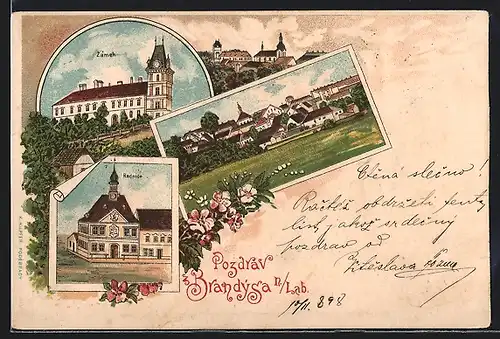 Zámek
Radnice
Pozdrav
z Brandýsa n/Lab.
Ctěná slečno!
Račtěž obdržeti tento
list jakož srdečný
pozdrav od
17/II. 898